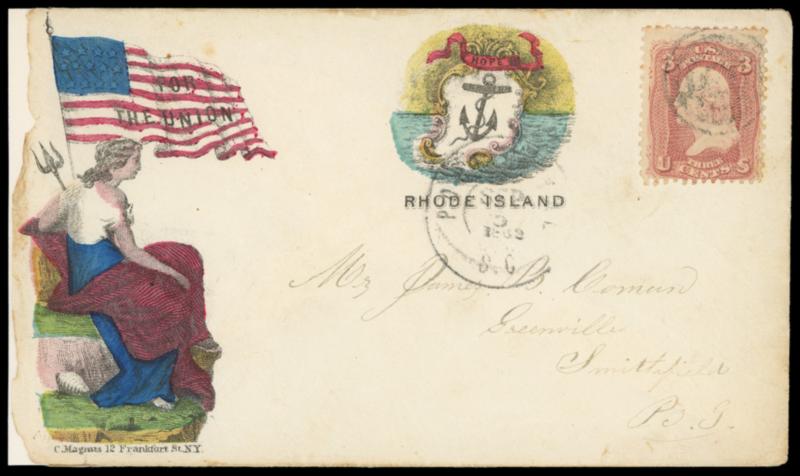 FOR
THE UNION
C. Magnus 12 Frankfort St. N.Y.
HOPE
RHODE ISLAND
PO
SEP
5
1862
S.C
U.S.
POSTAGE
3 3
U S
THREE
CENTS
Mr James B. Comun
Greenville
Smithfield
R. I.